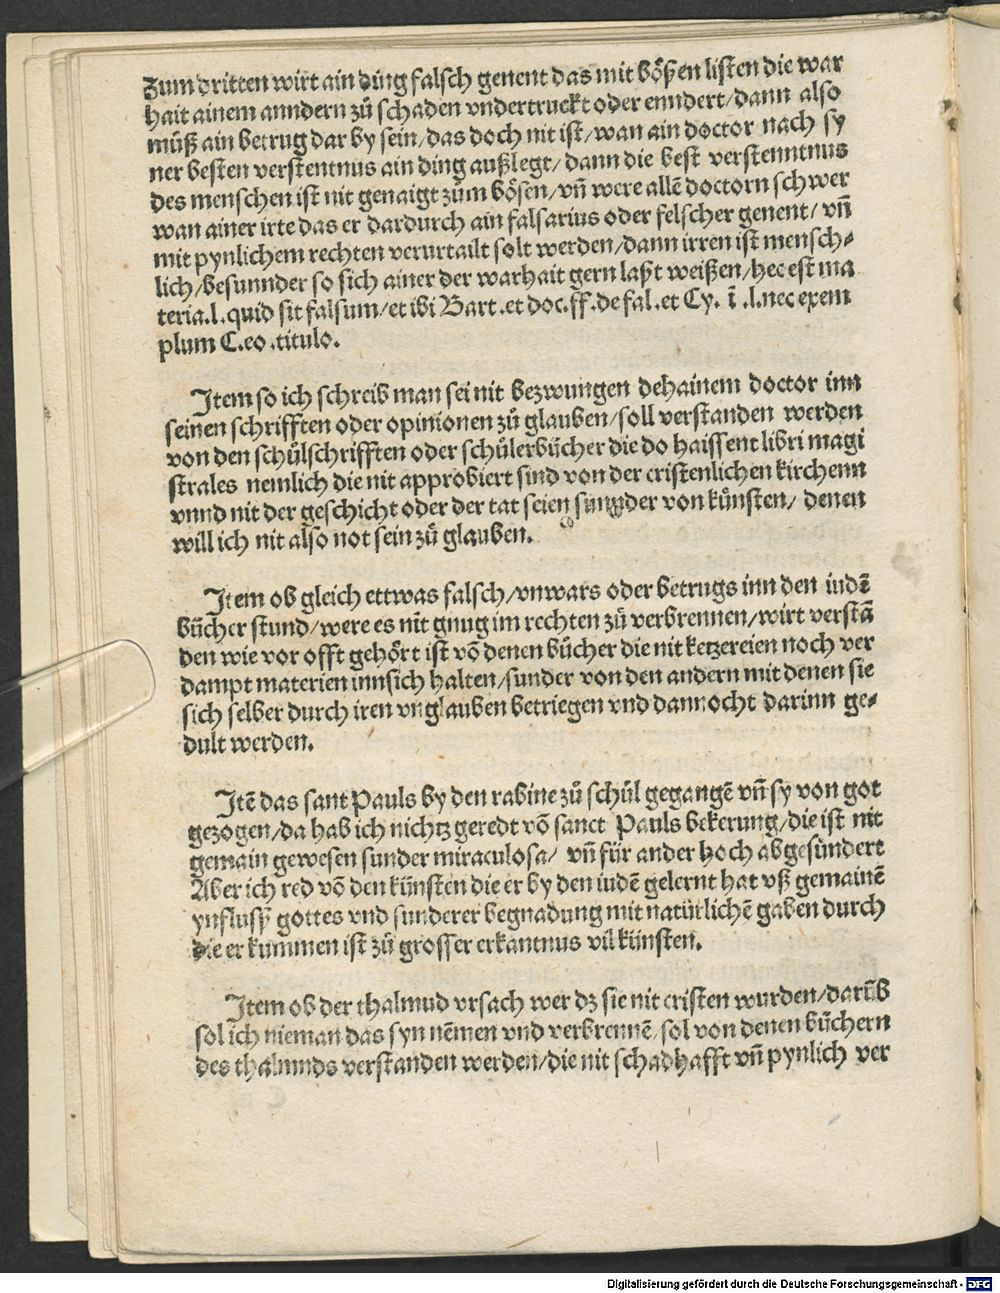 Zum dritten wirt ain ding falsch genent das mit bößen listen die war
hait ainem anndern zů schaden vndertruckt oder enndert/dann also
můß ain betrug dar by sein/das doch nit ist/wan ain doctor nach sy
ner besten verstentnus ain ding außlegt/dann die best verstenntnus
des menschen ist nit genaigt zům bösen/vñ were allē doctorn schwer
wan ainer irte das er dardurch ain falsarius oder felscher genent/vñ
mit pynlichem rechten verurtailt solt werden/dann irren ist mensch⸗
lich/besunnder so sich ainer der warhait gern laßt weißen/hec est ma
teria.l.quid sit falsum/et ibi Bart.et doc.ff.de fal.et Cy. ī .l.nec exem
plum C.eo.titulo.
Item so ich schreib man sei nit bezwungen dehainem doctor inn
seinen schrifften oder opinionen zů glauben/soll verstanden werden
von den schůlschrifften oder schůlerbücher die do haissent libri magi
strales nemlich die nit approbiert sind von der cristenlichen kirchenn
vnnd nit der geschicht oder der tat seien sunnder von künsten/ denen
will ich nit also not sein zů glauben.
Item ob gleich ettwas falsch/vnwars oder betrugs inn den iudē
bücher stund/were es nit gnug im rechten zů verbrennen/wirt verstā
den wie vor offt gehört ist vō denen bücher die nit ketzereien noch ver
dampt materien innsich halten/sunder von den andern mit denen sie
sich selber durch iren vnglauben betriegen vnd dannocht darinn ge⸗
dult werden.
Itē das sant Pauls by den rabine zů schůl gegangē vñ sy von got
gezogen/da hab ich nichtz geredt vō sanct Pauls bekerung/die ist nit
gemain gewesen sunder miraculosa/ vñ für ander hoch abgesündert
Aber ich red vō den künsten die er by den iudē gelernt hat vß gemainē
ynflusß gottes vnd sunderer begnadung mit natürlichē gaben durch
die er kummen ist zů grosser erkantnus vil künsten.
Item ob der thalmud vrsach wer dz sie nit cristen wurden/darūb
sol ich nieman das syn nēmen vnd verbrennē/sol von denen büchern
des thalmuds verstanden werden/die nit schadhafft vñ pynlich ver
Digitalisierung gefördert durch die Deutsche Forschungsgemeinschaft - DFG